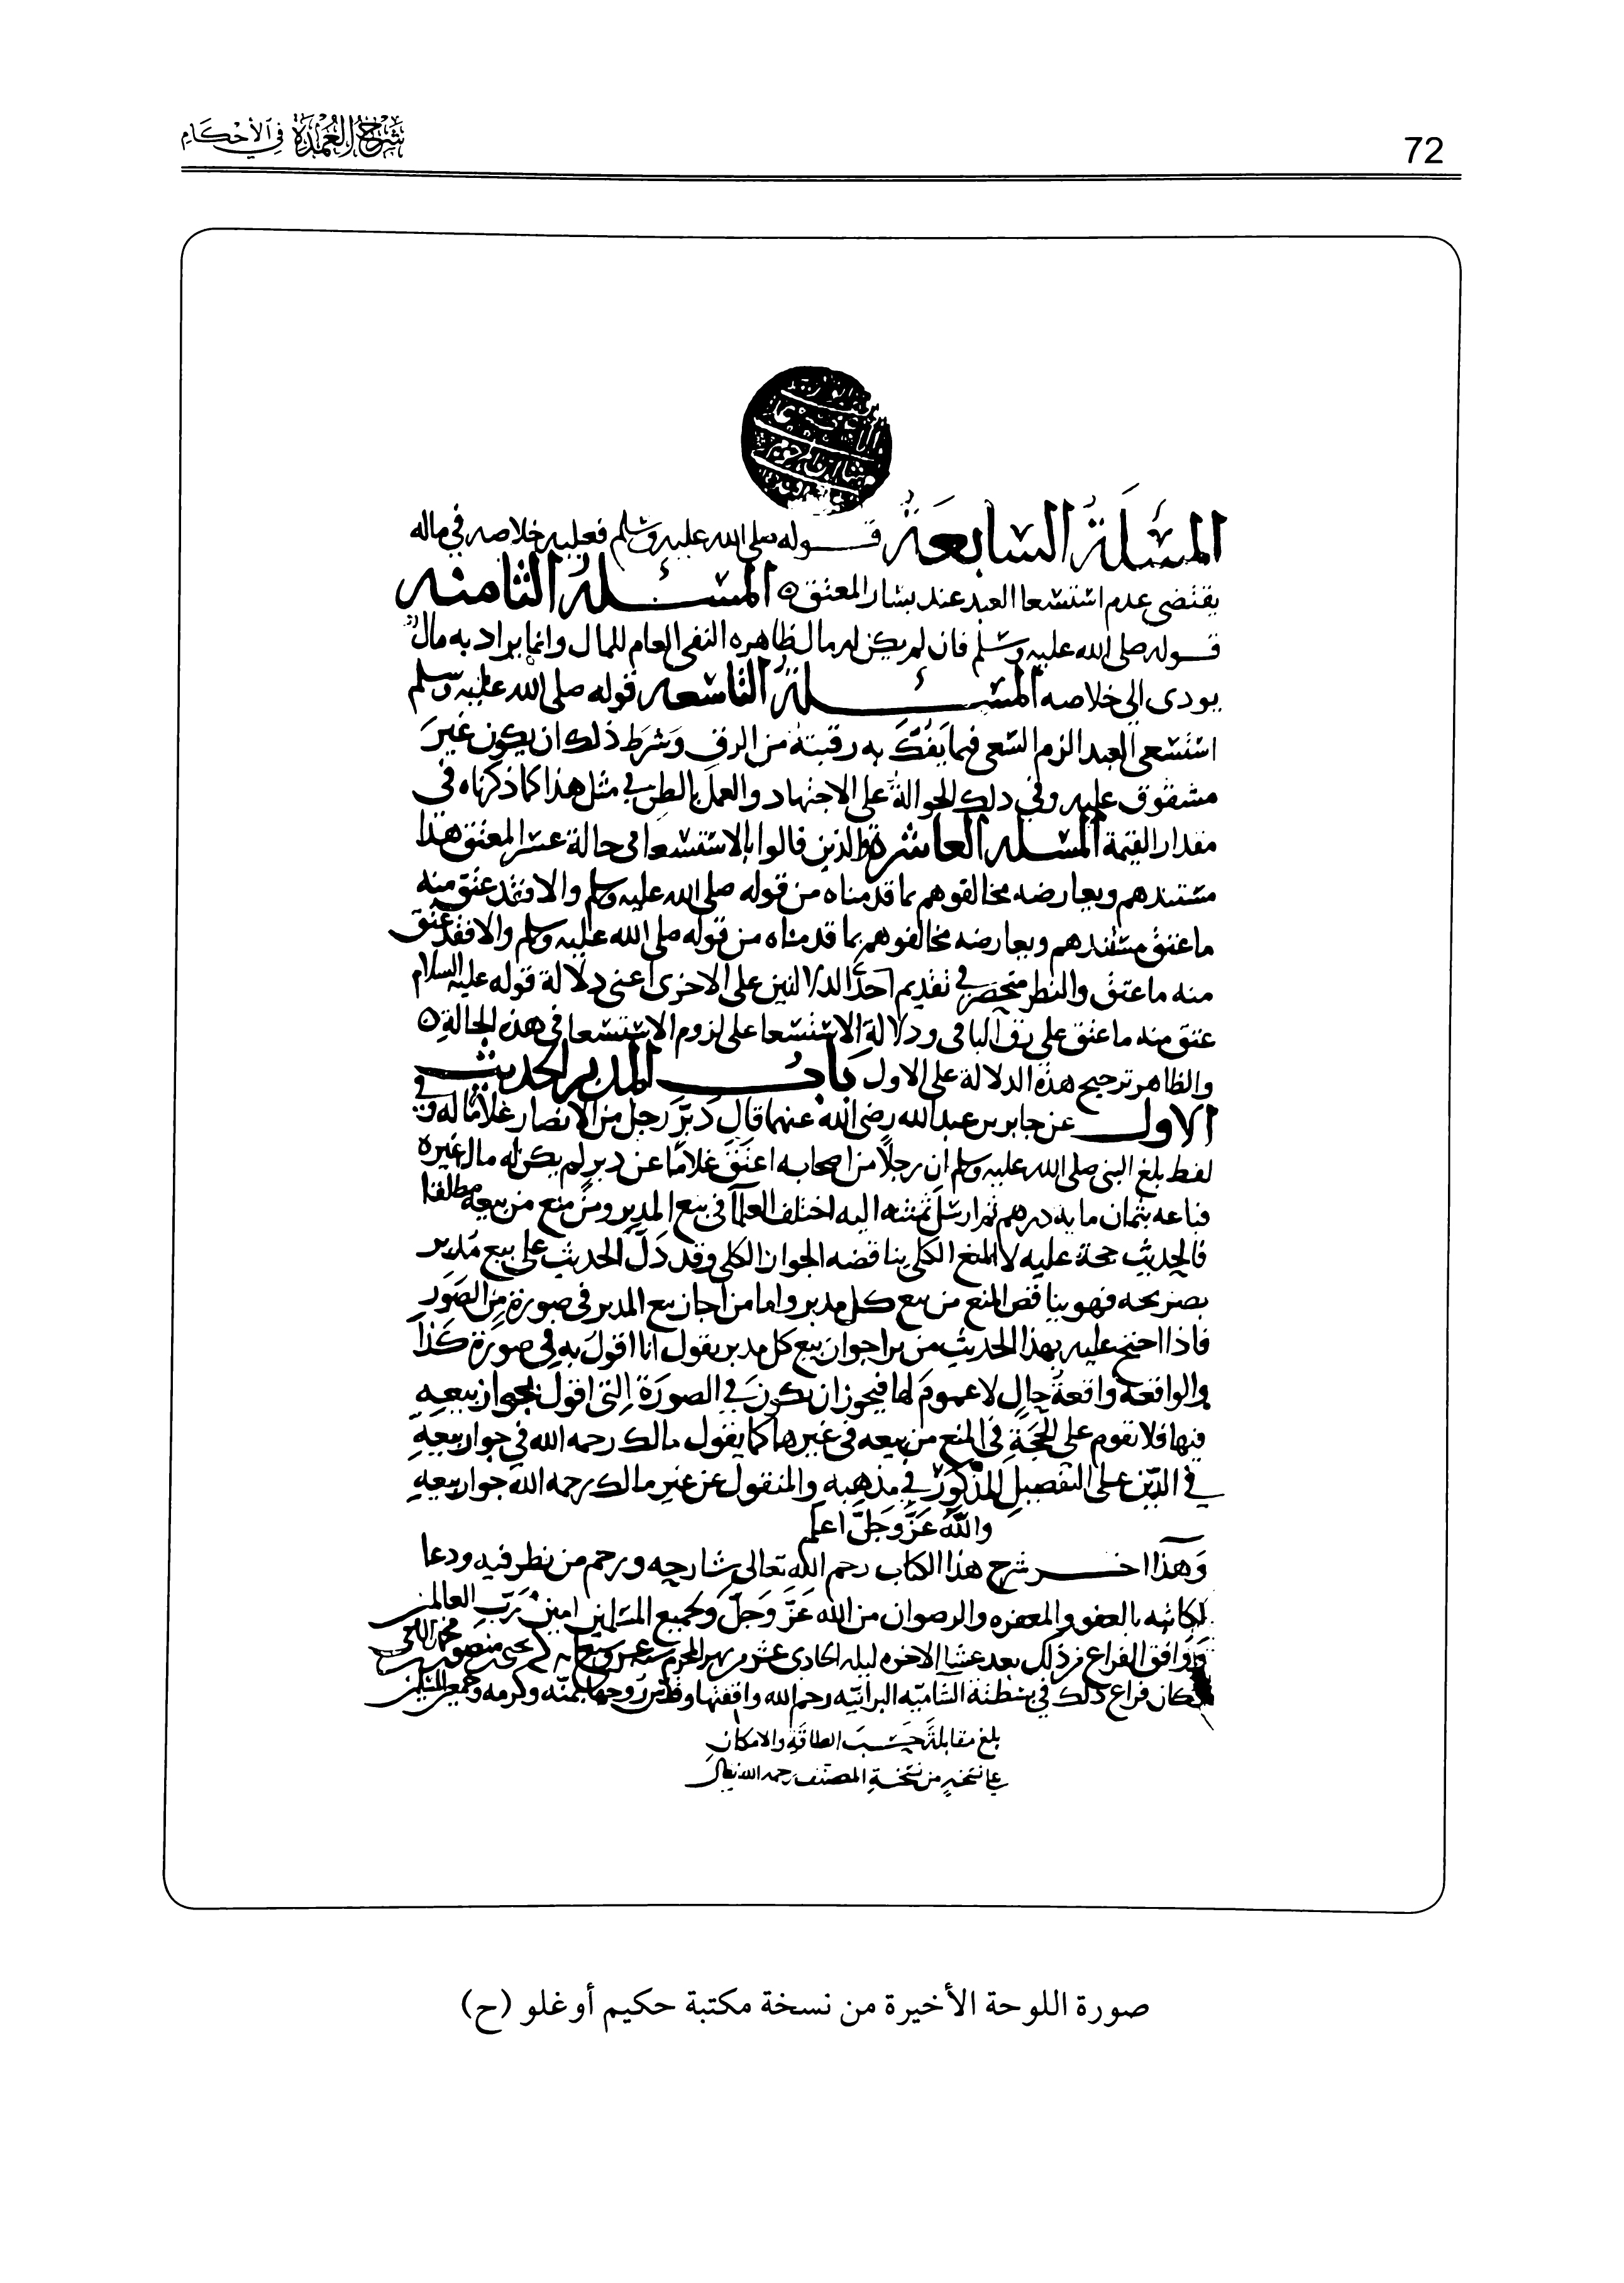 شرح العمدة في الأحكام
72
المسئلة السابعة قوله صلى الله عليه وسلم فعليه خلاصه في ماله
يقتضى عدم استسعا العبد عند يسار المعتق ه المسئلة الثامنه
قوله صلى الله عليه وسلم فان لم يكن له مال ظاهره النفى العام للمال وانما يراد به مال
يودى الى خلاصه المسئلة التاسعه قوله صلى الله عليه وسلم
استسعى العبد الزم السعى فيما يفك به رقبته من الرق وشرط ذلك ان يكون غير
مشقوق عليه وفي ذلك الحوالة على الاجتهاد والعمل بالظن في مثل هذا كما ذكرناه في
مقدار القيمة المسئله العاشرة الذين قالوا بالاستسعا في حالة عسر المعتق هذا
مستندهم ويعارضه مخالفوهم بما قدمناه من قوله صلى الله عليه وسلم والا فقد عتق منه
ما عتق مستندهم ويعارضه مخالفوهم بما قدمناه من قوله صلى الله عليه وسلم والا فقد عتق
منه ما عتق والنظر منحصر في تقديم احدى الدلالتين على الاخرى اعنى دلالة قوله عليه السلام
عتق منه ما عتق على رق الباقي ودلالة الاستسعا على لزوم الاستسعا في هذه الحالة ه
والظاهر ترجيح هذه الدلالة على الاول باب المدبر الحديث
الاول عن جابر بن عبد الله رضى الله عنهما قال دبر رجل من الانصار غلاما له وفي
لفظ بلغ النبي صلى الله عليه وسلم ان رجلا من اصحابه اعتق غلاما عن دبر لم يكن له مال غيره
فباعه بثمان مايه درهم ثم ارسل ثمنه اليه اختلف العلما في بيع المدبر ومن منع من بيعه مطلقا
فالحديث حجة عليه لان المنع الكلي يناقضه الجواز الكلي وقد دل الحديث على بيع مدبر
بصريحه فهو يناقض المنع من بيع كل مدبر واما من اجاز بيع المدبر في صورة من الصور
فاذا احتج عليه بهذا الحديث من يرا جواز بيع كل مدبر يقول انا اقول به في صورة كذا
والواقعة واقعة حال لا عموم لها فيجوز ان يكون في الصورة التى اقول بجواز بيعه
فيها فلا تقوم على الحجة في المنع من بيعه في غيرها كما يقول مالك رحمه الله في جواز بيعه
في الدين على التفصيل المذكور في مذهبه والمنقول عن غير مالك رحمه الله جواز بيعه
والله عز وجل اعلم
وهذا اخر شرح هذا الكتاب رحم الله تعالى شارحه ورحم من نظر فيه ودعا
لكاتبه بالعفو والمغفره والرضوان من الله عز وجل ولجميع المسلمين امين رب العالمين
ووافق الفراغ من ذلك بعد عشا الاخره ليلة الحادى عشر من شهر المحرم
وكان فراغ ذلك في الشاميه البرانيه رحم الله واقفتها بمنه وكرمه وجميع المسلمين
بلغ مقابلة حسب الطاقة والامكان
على نسخة من نسخة المصنف رحمه الله تعالى
صورة اللوحة الأخيرة من نسخة مكتبة حكيم أوغلو (ح)